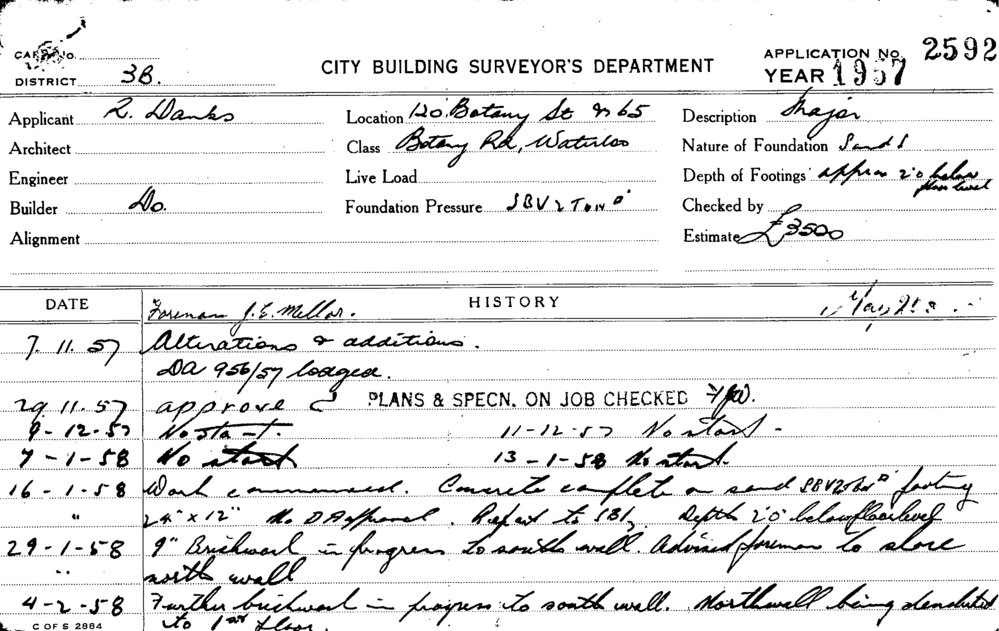 CARD No.
DISTRICT 3B.
CITY BUILDING SURVEYOR'S DEPARTMENT
APPLICATION No. 2592
YEAR 1957
Applicant R. Danks
Location 120 Botany St & 65
Description Major
Architect
Class Botany Rd, Waterloo
Nature of Foundation Sand
Engineer
Live Load
Depth of Footings approx 2'0 below floor level
Builder Do.
Foundation Pressure SBV 2 Ton
Checked by
Alignment
Estimate £3500
DATE
HISTORY
Foreman J.E. Mellor.
7. 11. 57 Alterations & additions.
DA 956/57 lodged.
29 11. 57 approve PLANS & SPECN. ON JOB CHECKED
9-12-57 No start. 11-12-57 No start -
7-1-58 No start 13-1-58 No start.
16-1-58 Work commenced. Concrete complete on sand SBV footing
" 24" x 12" No DA approval. Report to SBI, Depth 2'0" below floor level
29-1-58 9" Brickwork in progress to south wall. Advised foreman to shore
" north wall
4-2-58 Further brickwork in progress to south wall. North wall being demolished
to 1st floor.
C OF S 2884